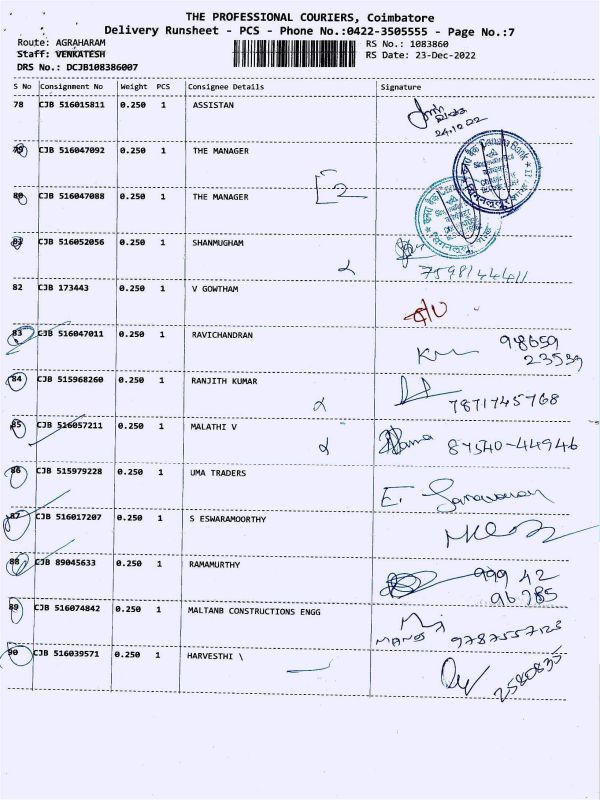 THE PROFESSIONAL COURIERS, Coimbatore
Delivery Runsheet - PCS - Phone No.:0422-3505555 - Page No.:7
Route: AGRAHARAM RS No.: 1083860
Staff: VENKATESH RS Date: 23-Dec-2022
DRS No.: DCJB108386007
S No Consignment No Weight PCS Consignee Details Signature
78 CJB 516015811 0.250 1 ASSISTAN
24.12.22
79 CJB 516047092 0.250 1 THE MANAGER
Canara Bank
80 CJB 516047088 0.250 1 THE MANAGER
2
81 CJB 516052056 0.250 1 SHANMUGHAM
7598144411
82 CJB 173443 0.250 1 V GOWTHAM
83 CJB 516047011 0.250 1 RAVICHANDRAN
98659
23539
84 CJB 515968260 0.250 1 RANJITH KUMAR
7871745768
85 CJB 516057211 0.250 1 MALATHI V
87540-44946
86 CJB 515979228 0.250 1 UMA TRADERS
E. Saravanan
87 CJB 516017207 0.250 1 S ESWARAMOORTHY
88 CJB 89045633 0.250 1 RAMAMURTHY
999 42
96785
89 CJB 516074842 0.250 1 MALTANB CONSTRUCTIONS ENGG
MANOJ 9787557123
90 CJB 516039571 0.250 1 HARVESTHI \
2580835